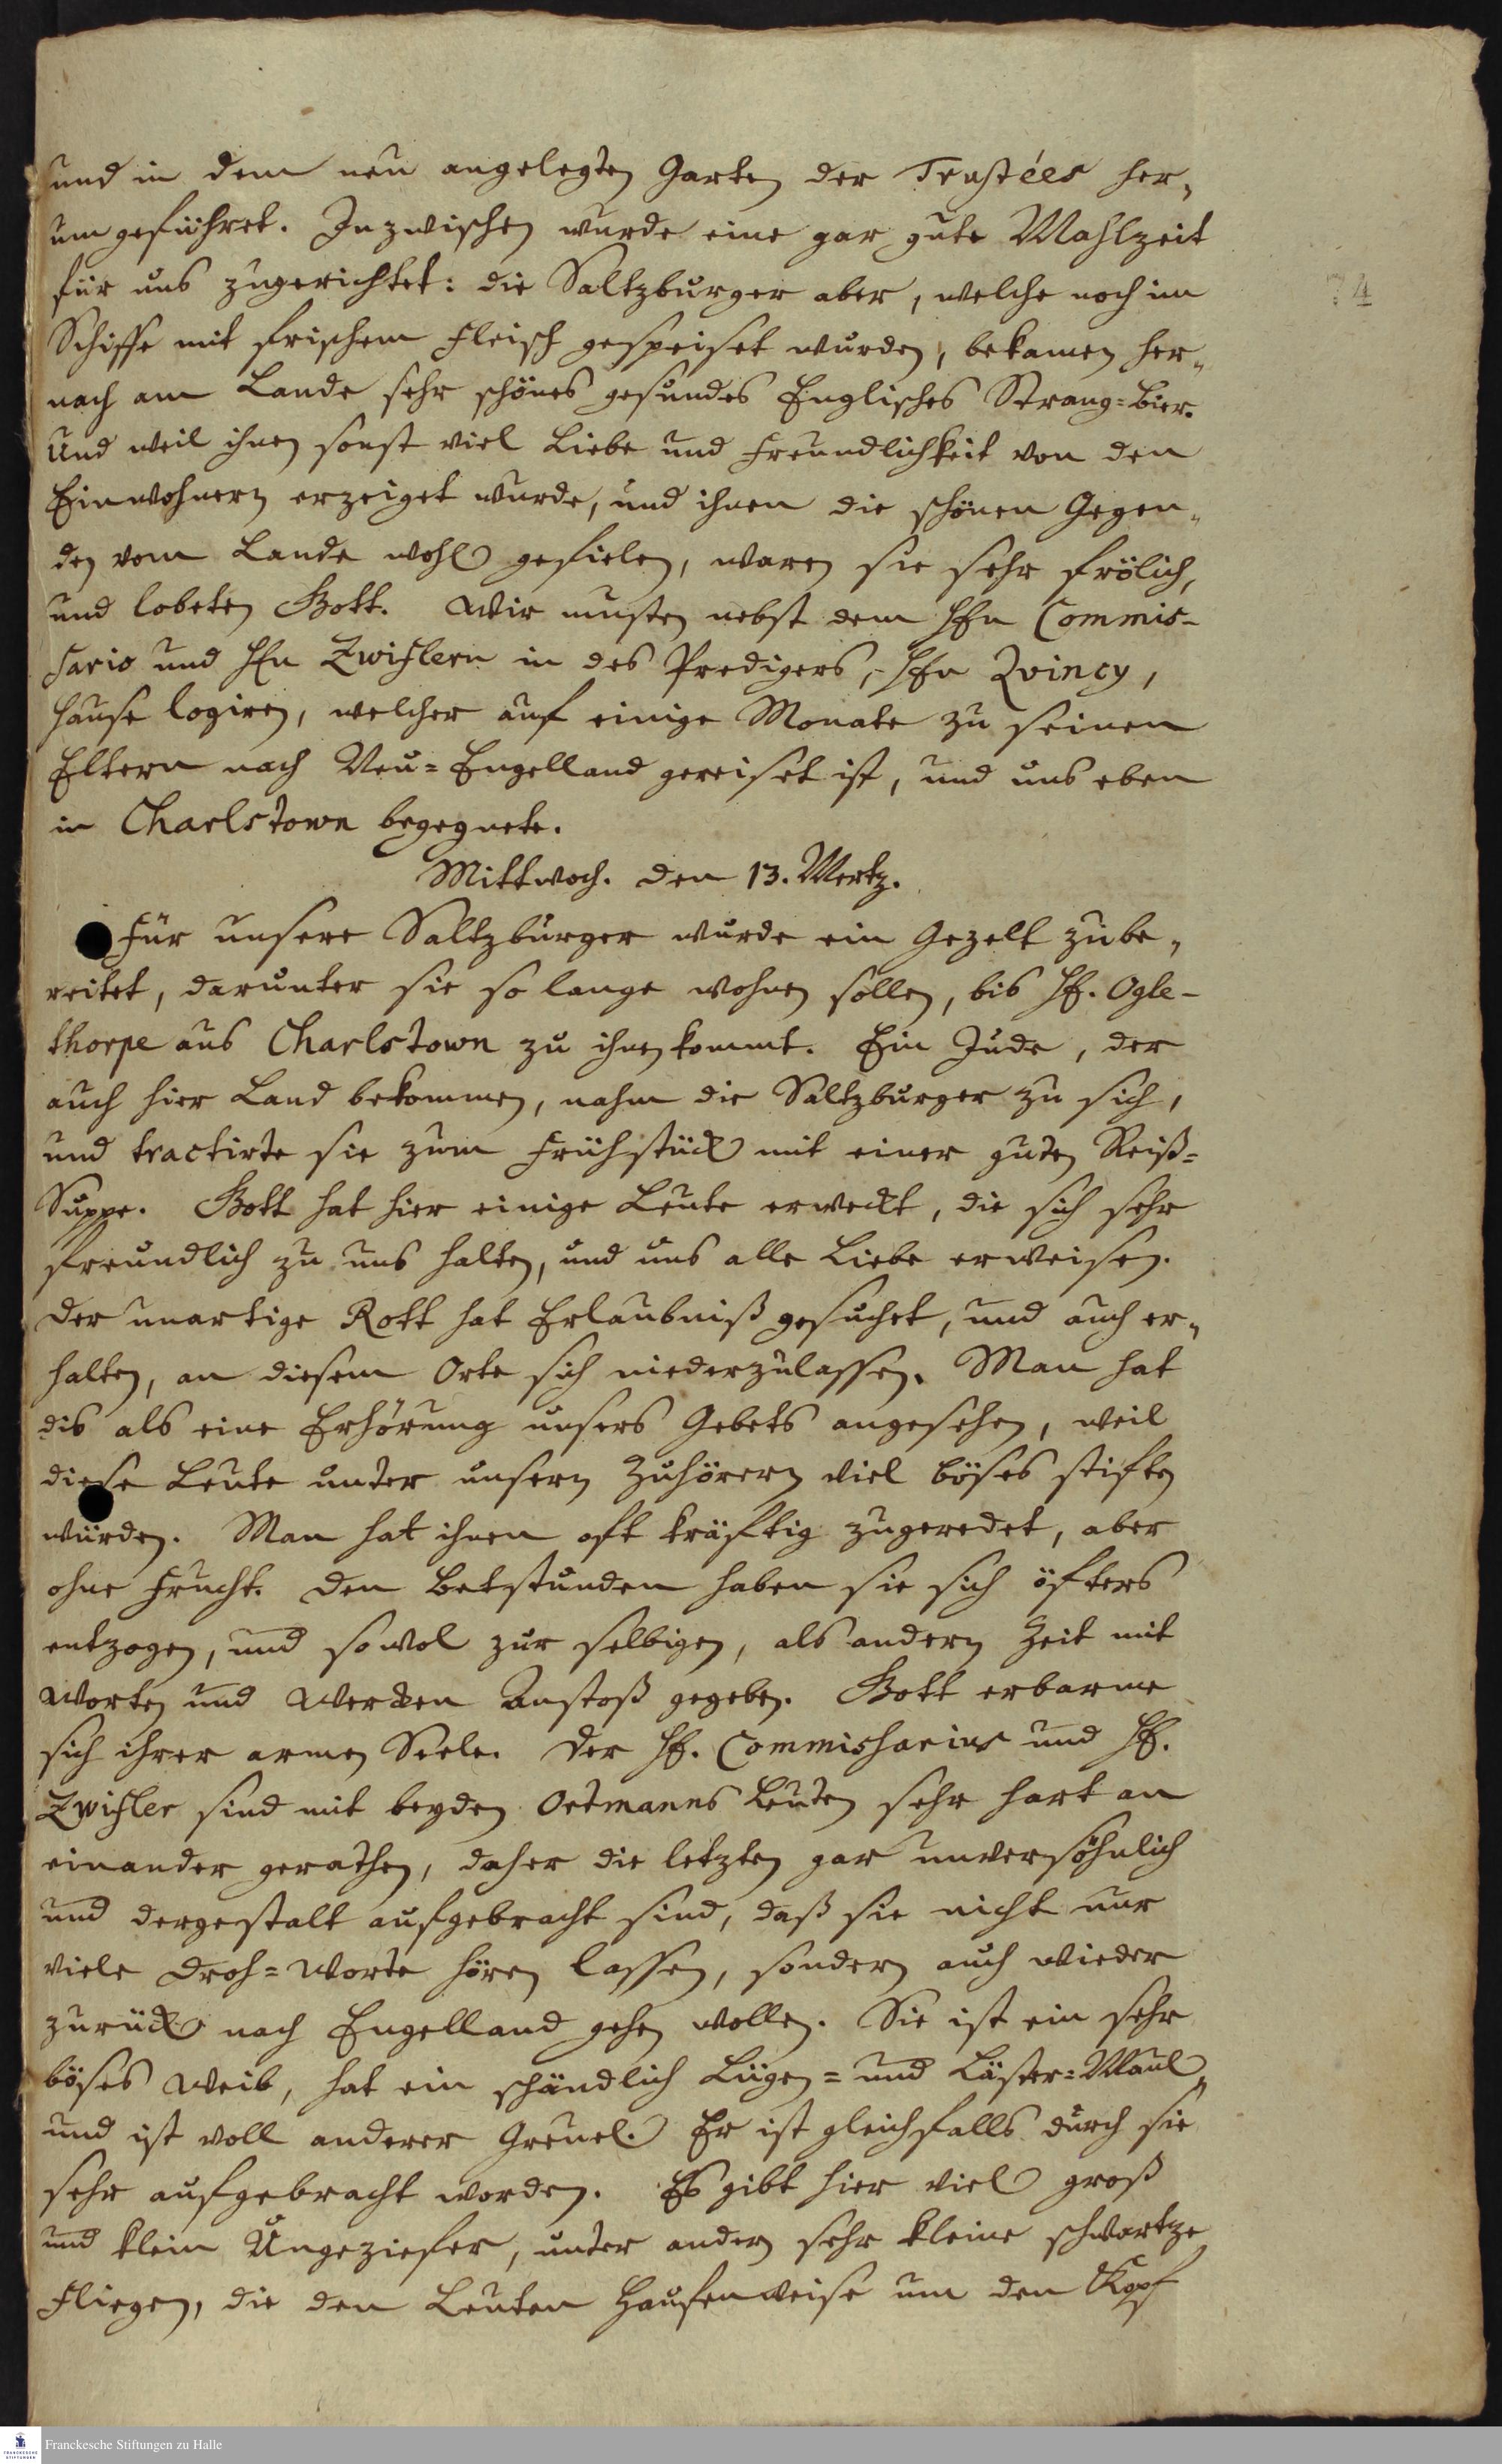 und in dem neu angelegten Garten der Trustées her-
um geführet. Inzwischen wurde eine gar gute Mahlzeit
für uns zugerichtet: die Saltzburger aber, welche noch im
74
Schiffe mit frischem Fleisch gespeiset wurden, bekamen her-
nach am Lande sehr schönes gesundes Englisches Strang-Bier.
Und weil ihnen sonst viel Liebe und Freundlichkeit von den
Einwohnern erzeiget wurde, und ihnen die schönen Gegen-
den vom Lande wohl gefielen, waren sie sehr frölich,
und lobeten Gott. Wir musten nebst dem Hrn Commis-
sario und Hrn Zwiflern in des Predigers, Hrn Qvincy,
Hause logiren, welcher auf einige Monate zu seinen
Eltern nach Neu-Engelland gereiset ist, und uns eben
in Charlstown begegnete.
Mittwoch. den 13. Mertz.
Für unsere Saltzburger wurde ein Gezelt zube-
reitet, darunter sie so lange wohnen sollen, bis Hr. Ogle-
thorpe aus Charlstown zu ihnen kommt. Ein Jude, der
auch hier Land bekommen, nahm die Saltzburger zu sich,
und tractirte sie zum Frühstück mit einer guten Reiß-
Suppe. Gott hat hier einige Leute erweckt, die sich sehr
freundlich zu uns halten, und uns alle Liebe erweisen.
Der unartige Rott hat Erlaubniß gesuchet, und auch er-
halten, an diesem Orte sich niederzulassen. Man hat
dis als eine Erhörung unsers Gebets angesehen, weil
diese Leute unter unsern Zuhörern viel böses stiften
würden. Man hat ihnen oft kräftig zugeredet, aber
ohne Frucht. Den Betstunden haben sie sich öfters
entzogen, und sowol zur selbigen, als andern Zeit mit
Worten und Wercken Anstoß gegeben. Gott erbarme
sich ihrer armen Seele. Der Hr. Commissarius und Hr.
Zwifler sind mit beyden Ortmanns Leuten sehr hart an
einander gerathen, daher die letzten gar unversöhnlich
und dergestalt aufgebracht sind, daß sie nicht nur
viele Droh-Worte hören lassen, sondern auch wieder
zurück nach Engelland gehen wollen. Sie ist ein sehr
böses Weib, hat ein schändlich Lügen- und Läster-Maul,
und ist voll anderer Greuel. Er ist gleichfalls durch sie
sehr aufgebracht worden. Es gibt hier viel groß
und klein Ungeziefer, unter andern sehr kleine schwartze
Fliegen, die den Leuten Haufenweise um den Kopf
FRANCKESCHE STIFTUNGEN
Franckesche Stiftungen zu Halle